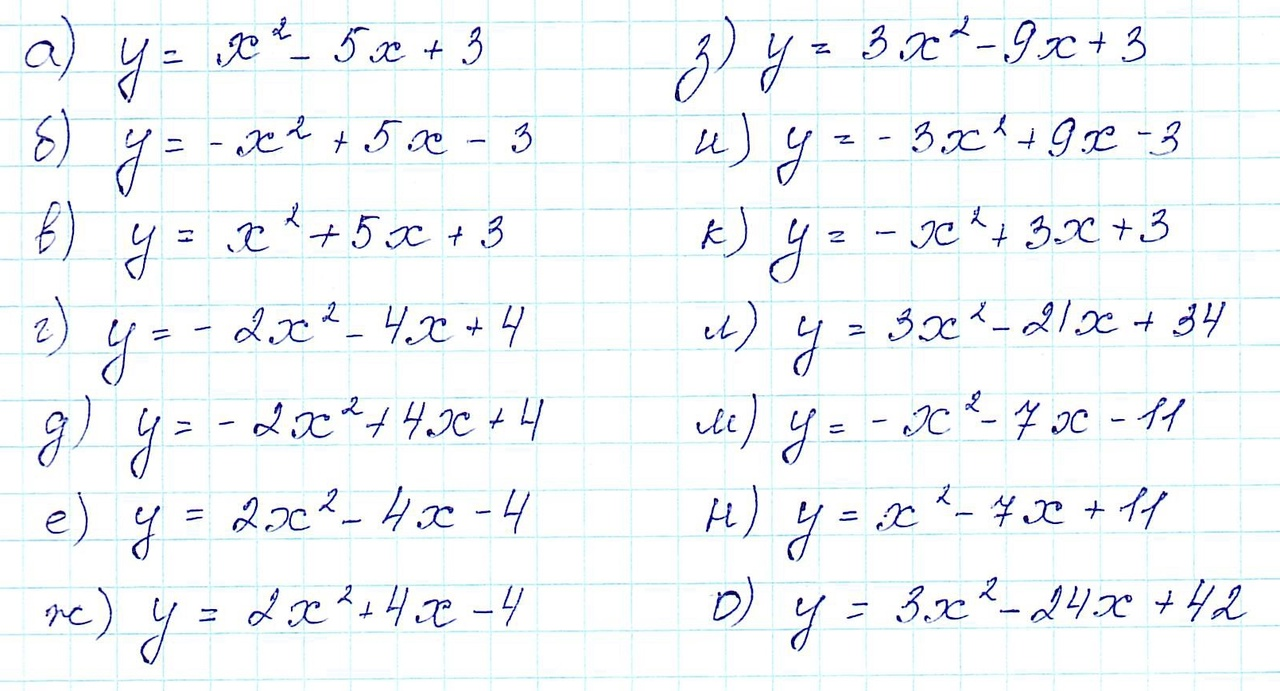 а) y = x² - 5x + 3
б) y = -x² + 5x - 3
в) y = x² + 5x + 3
г) y = - 2x² - 4x + 4
д) y = - 2x² + 4x + 4
е) y = 2x² - 4x - 4
ж) y = 2x² + 4x - 4
з) y = 3x² - 9x + 3
и) y = - 3x² + 9x - 3
к) y = - x² + 3x + 3
л) y = 3x² - 21x + 34
м) y = - x² - 7x - 11
н) y = x² - 7x + 11
о) y = 3x² - 24x + 42